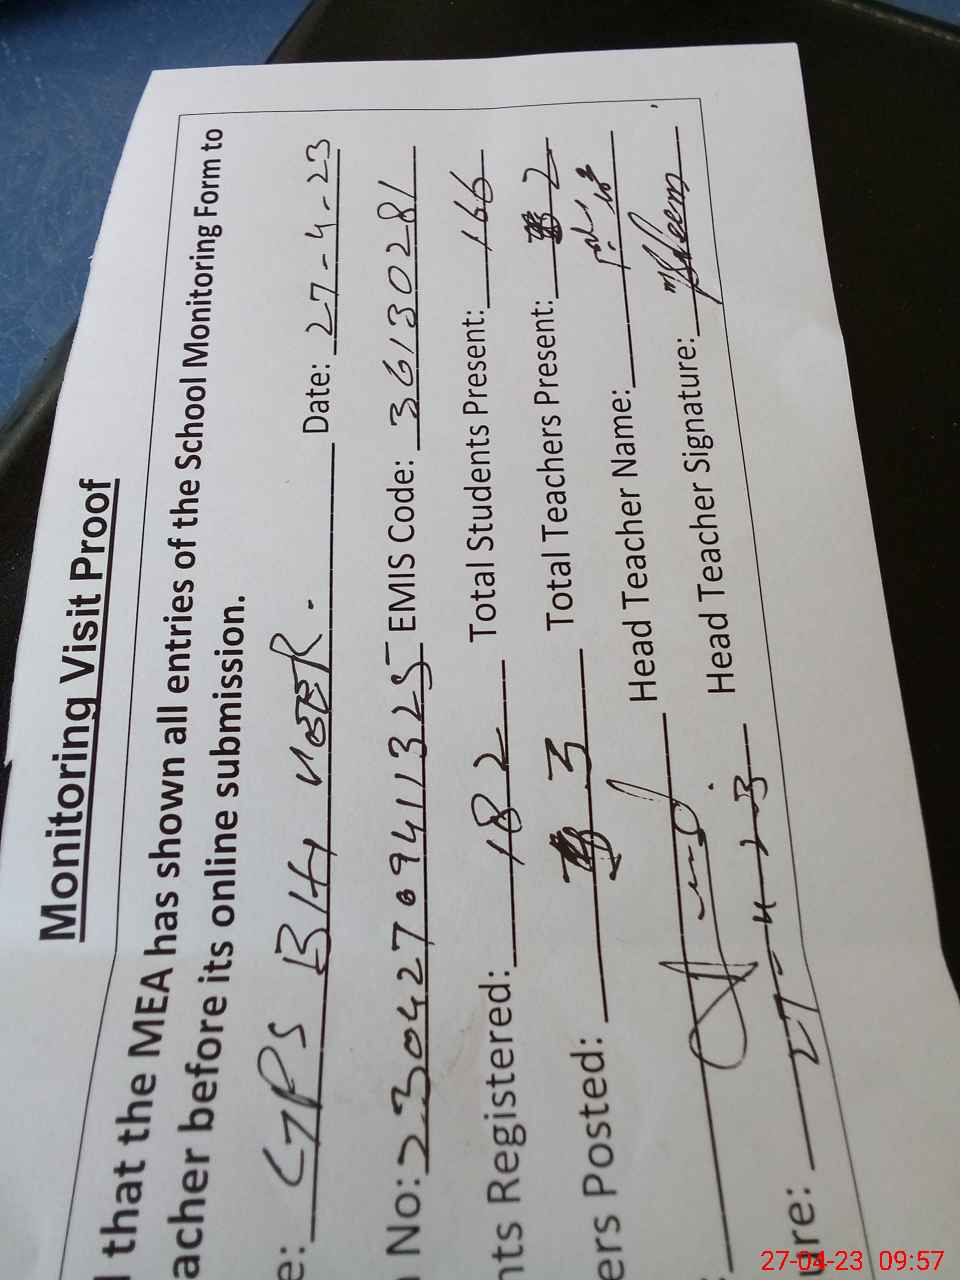 Monitoring Visit Proof
that the MEA has shown all entries of the School Monitoring Form to
acher before its online submission.
e: GPS BH Date: 27-4-23
No: 2304270941325 EMIS Code: 36130281
nts Registered: 182 Total Students Present: 166
ers Posted: 3 Total Teachers Present: 2
Head Teacher Name:
ure: 27-4-23 Head Teacher Signature:
27-04-23 09:57